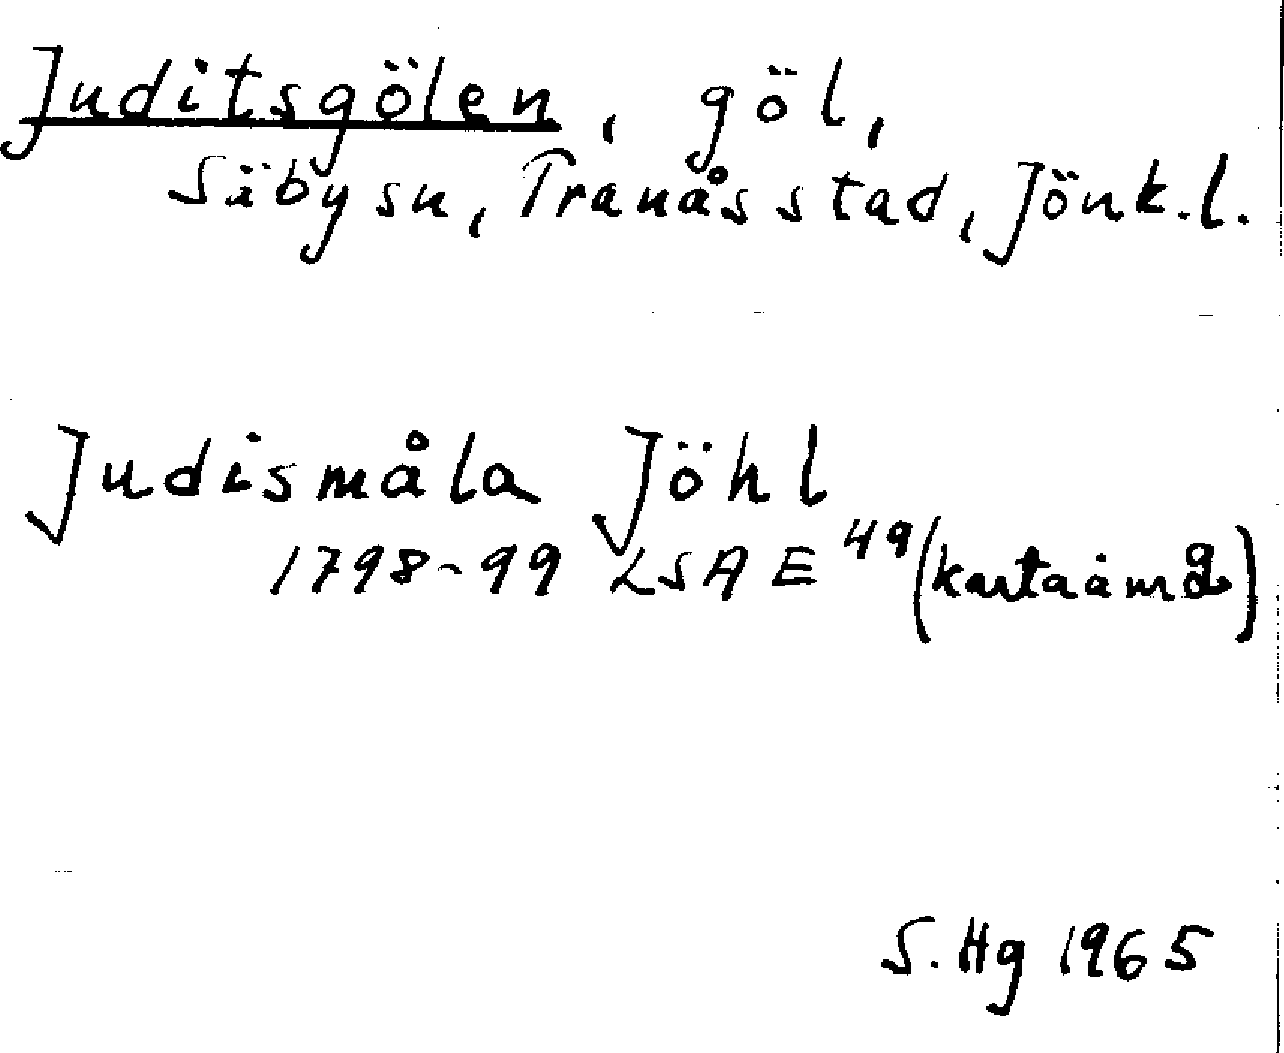 Juditsgölen, göl,
Säby sn, Tranås stad, Jönk.l.
Judismåla Jöhl
1798-99 LSA E 49 (karta
S. Hg 1965